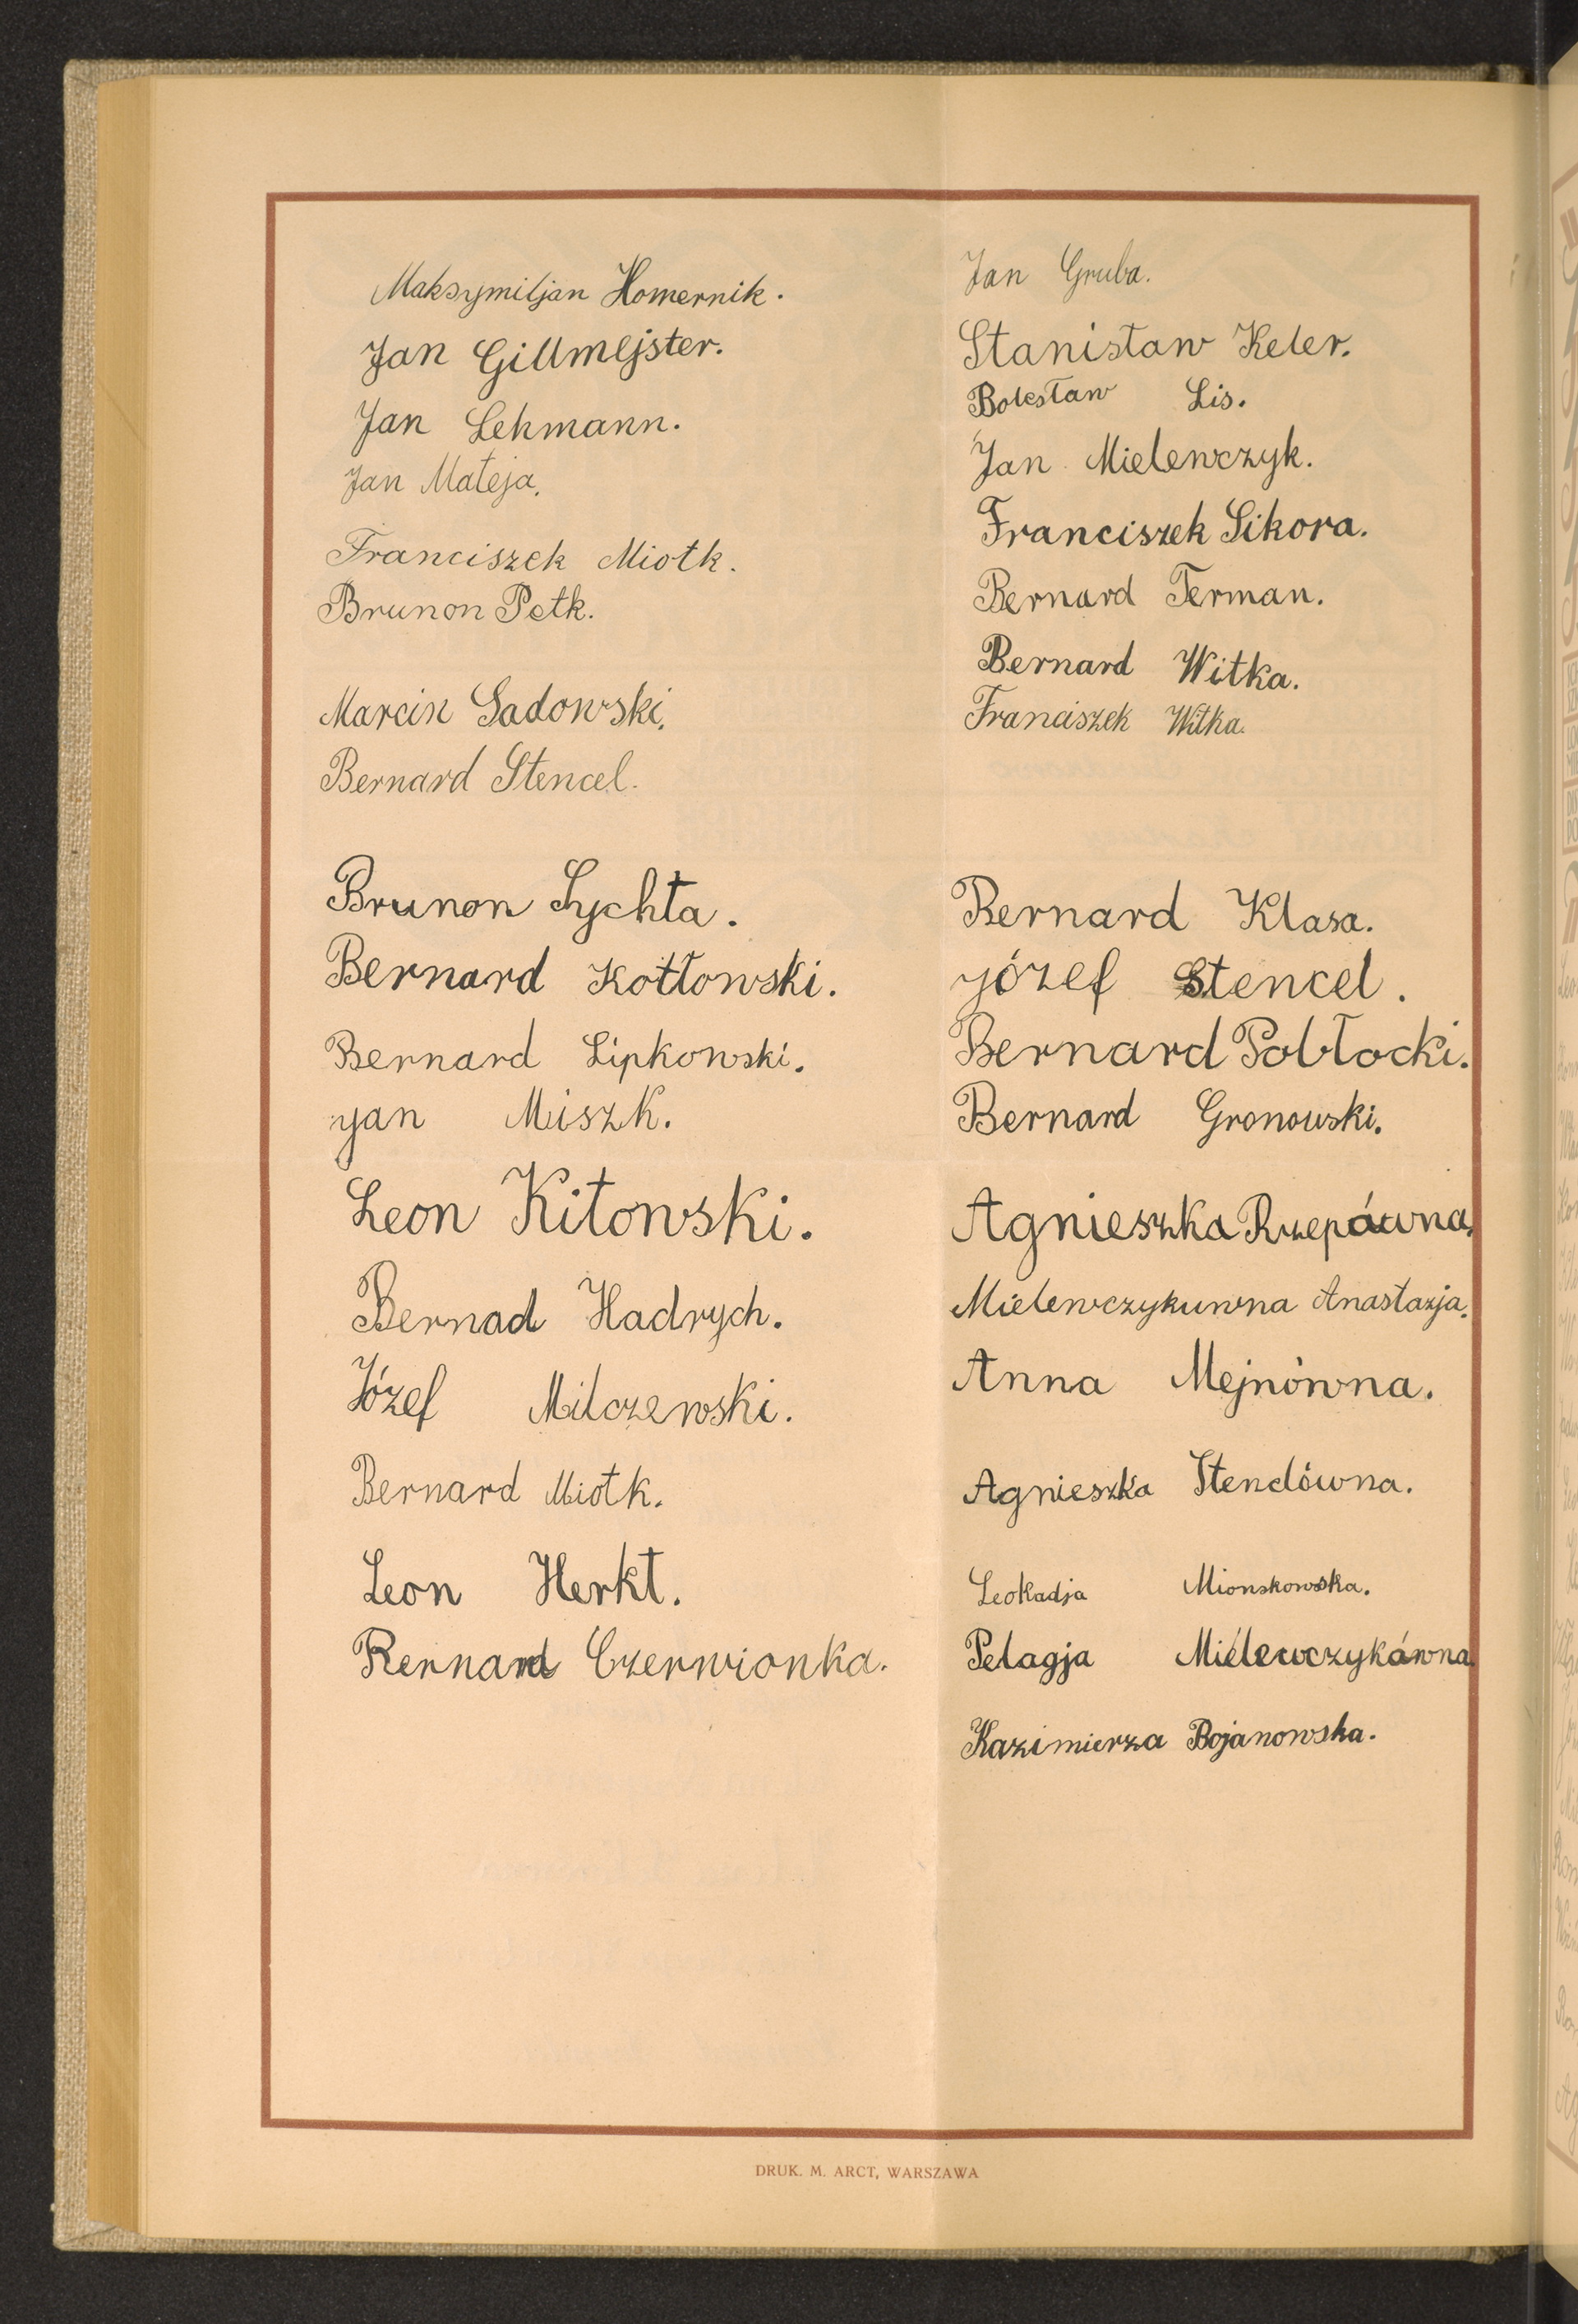 Maksymiljan Homernik.
Jan Gillmejster.
Jan Lehmann.
Jan Mateja.
Franciszek Miotk.
Brunon Petk.
Marcin Sadowski.
Bernard Stencel.
Brunon Sychta.
Bernard Kotłowski.
Bernard Lipkowski.
Jan Miszk.
Leon Kitowski.
Bernad Hadrych.
Józef Milczewski.
Bernard Miotk.
Leon Herkt.
Bernard Czerwionka.
Jan Gruba.
Stanisław Keler.
Bolesław Lis.
Jan Mielewczyk.
Franciszek Sikora.
Bernard Terman.
Bernard Witka.
Franciszek Witka.
Bernard Klasa.
Józef Stencel.
Bernard Pobłocki.
Bernard Gronowski.
Agnieszka Rzepówna.
Mielewczykuwna Anastazja.
Anna Mejnówna.
Agnieszka Stendówna.
Leokadja Mionskowska.
Pelagja Mielewczykówna.
Kazimierza Bojanowska.
DRUK. M. ARCT, WARSZAWA